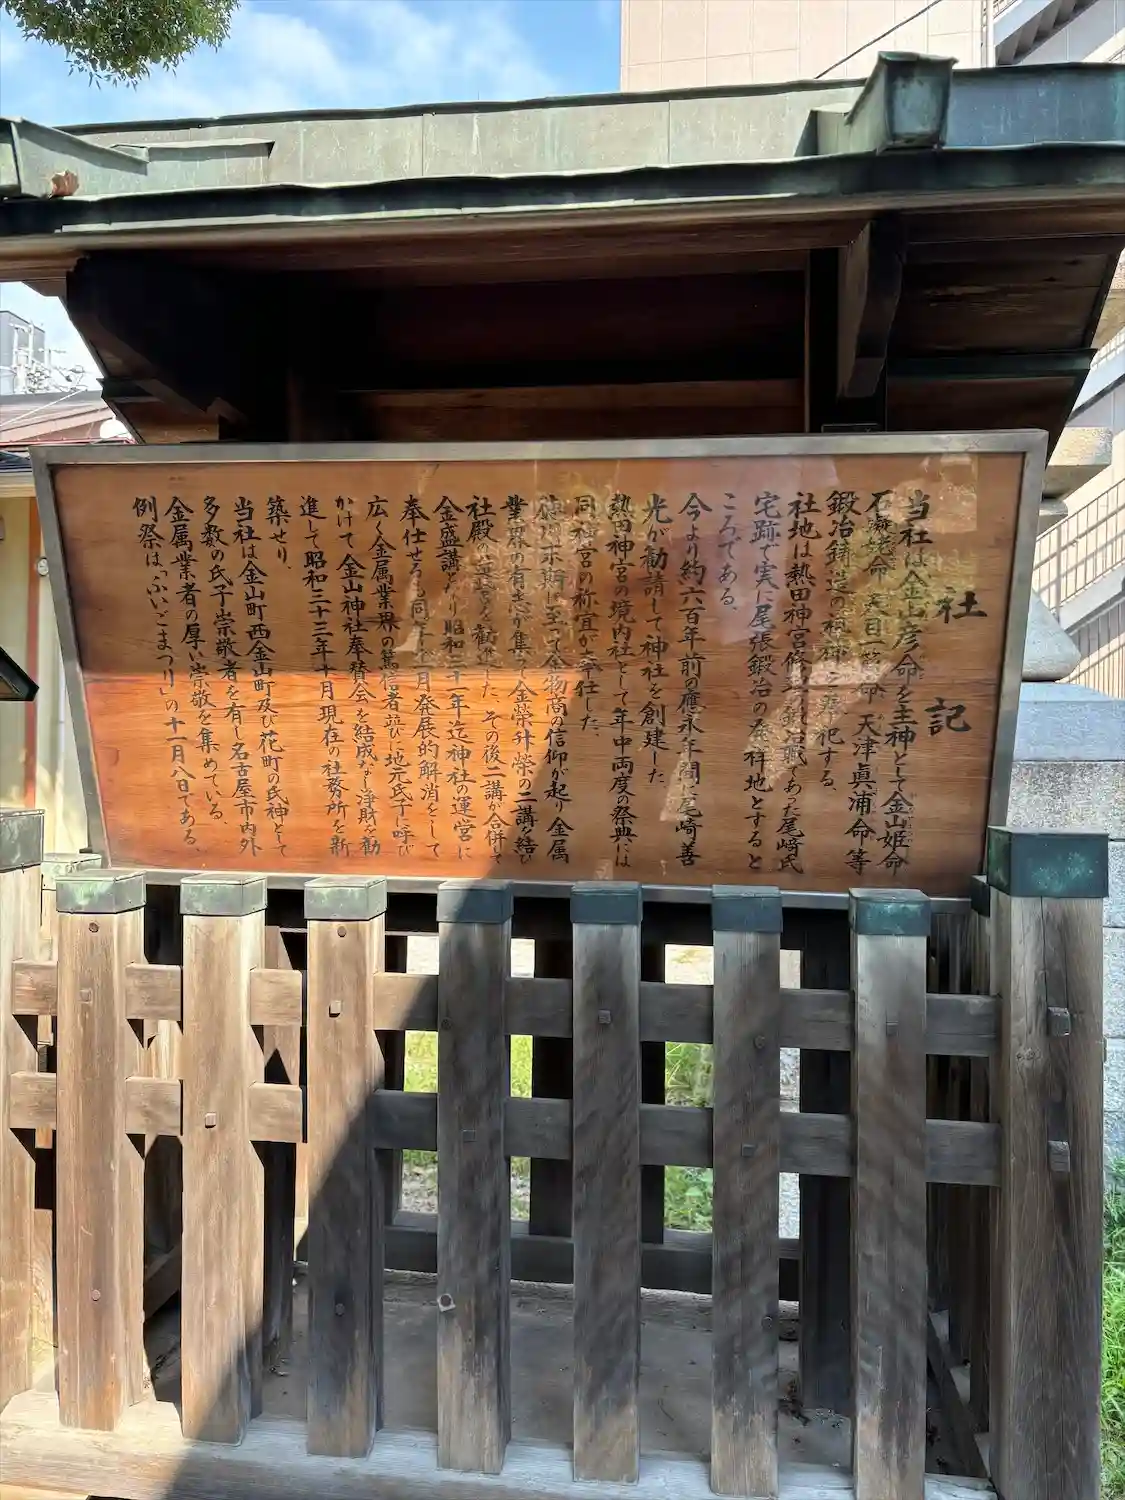 社記
当社は金山彦命を主神として金山姫命
石凝姥命 天目一箇命 天津真浦命等
鍛冶鋳造の祖神を奉祀する、
社地は熱田神宮修理鍛冶職であった尾崎氏
宅跡で実に尾張鍛冶の発祥地とすると
ころである、
今より約六百年前の應永年間に尾崎善
光が勧請して神社を創建した
熱田神宮の境内社として年中両度の祭典には
同神宮の祢宜が奉仕した、
徳川末期に至って金物商の信仰が起り金属
業界の有志が集って金榮舛榮の二講を結び
社殿の を勧進した、その後二講が合併して
金盛講となり昭和二十一年迄神社の運営に
奉仕せるも同年十月発展的解消をして
広く金属業界の篤信者並びに地元氏子に呼び
かけて金山神社奉賛会を結成なし浄財を勧
進して昭和三十三年十月現在の社務所を新
築せり、
当社は金山町西金山町及び花町の氏神として
多数の氏子崇敬者を有し名古屋市内外
金属業者の厚い崇敬を集めている、
例祭は「ふいごまつり」の十一月八日である、